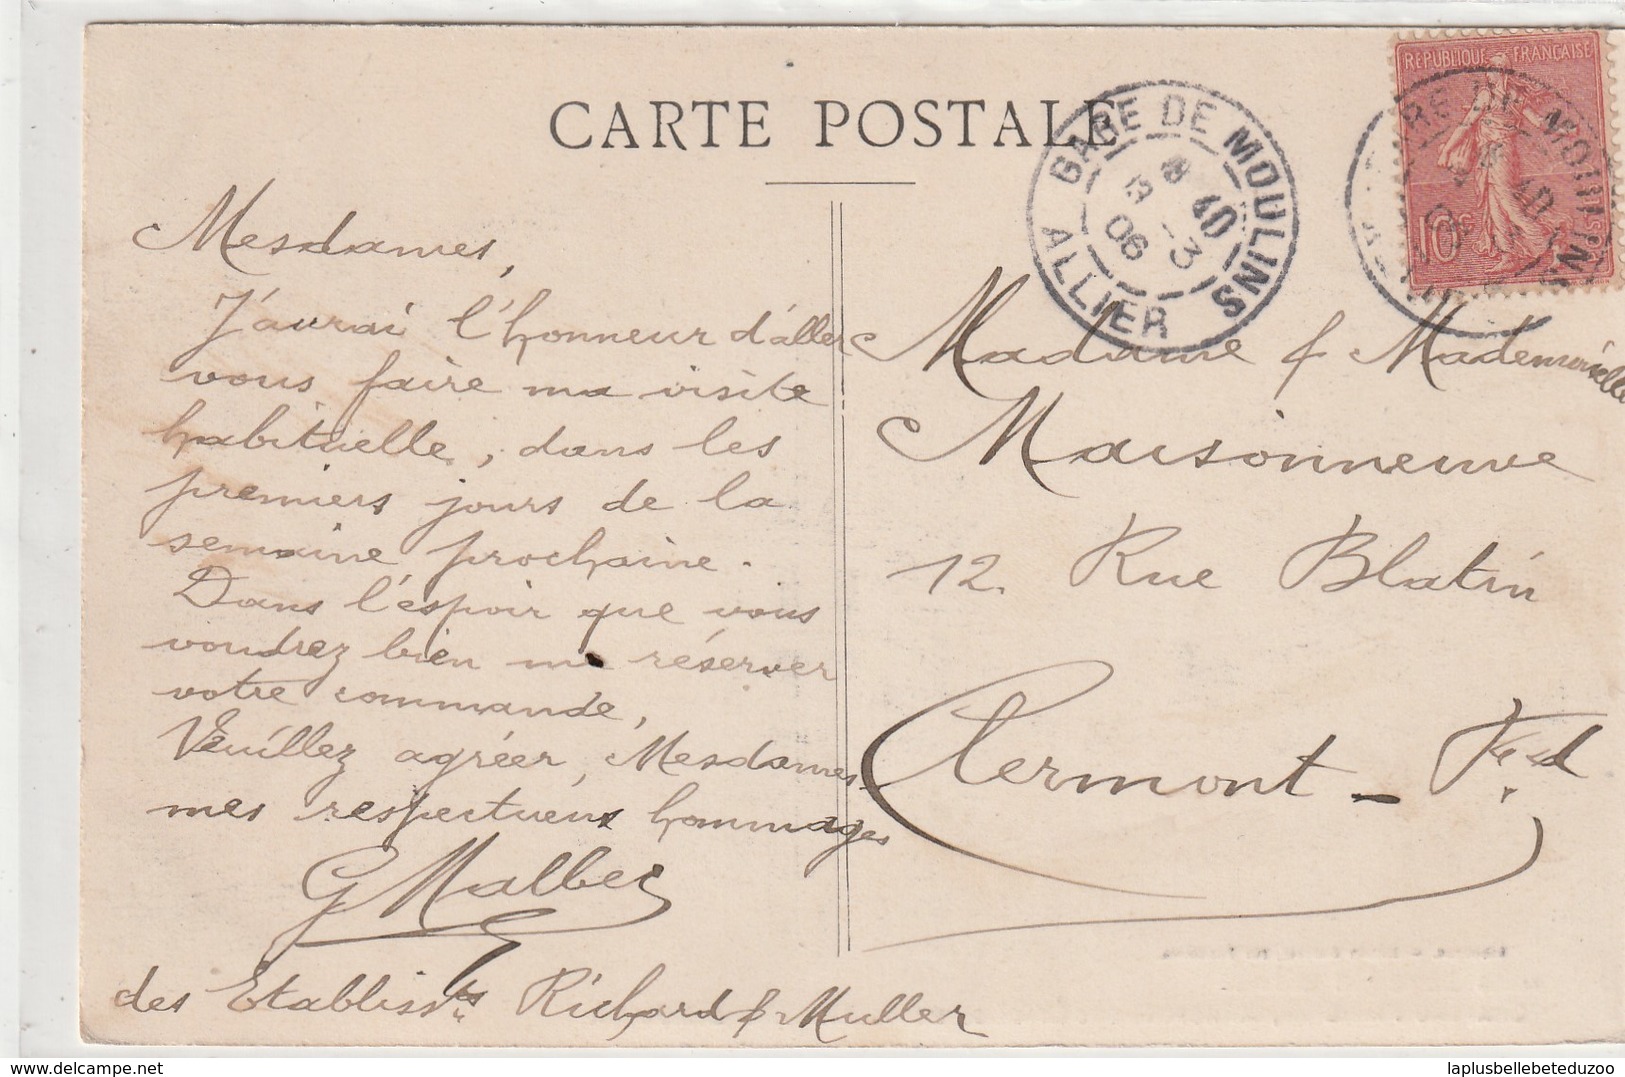 CARTE POSTALE
REPUBLIQUE FRANÇAISE
10c
GARE DE MOULINS
8 40
13 -3
06
ALLIER
Mesdames,
J'aurai l'honneur d'aller
vous faire ma visite
habituelle, dans les
premiers jours de la
semaine prochaine.
Dans l'espoir que vous
voudrez bien me réserver
votre commande,
Veuillez agréer, Mesdames
mes respectueux hommages
G Malbec
des Etablissts Richard & Muller
Madame & Mademoiselle
Maisonneuve
12. Rue Blatin
Clermont-Fd
laplusbellebeteduzoo